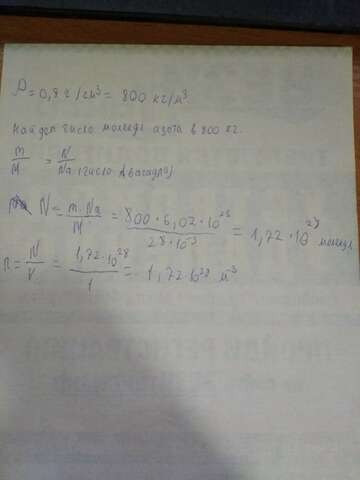 ρ = 0,8 г/см³ = 800 кг/м³.
Найдём число молекул азота в 800 кг.
m/M = N/Na (число Авогадро)
N = m·Na/M = 800·6,02·10²³/28·10⁻³ = 1,72·10²⁸ молекул
n = N/V = 1,72·10²⁸/1 = 1,72·10²⁸ м⁻³